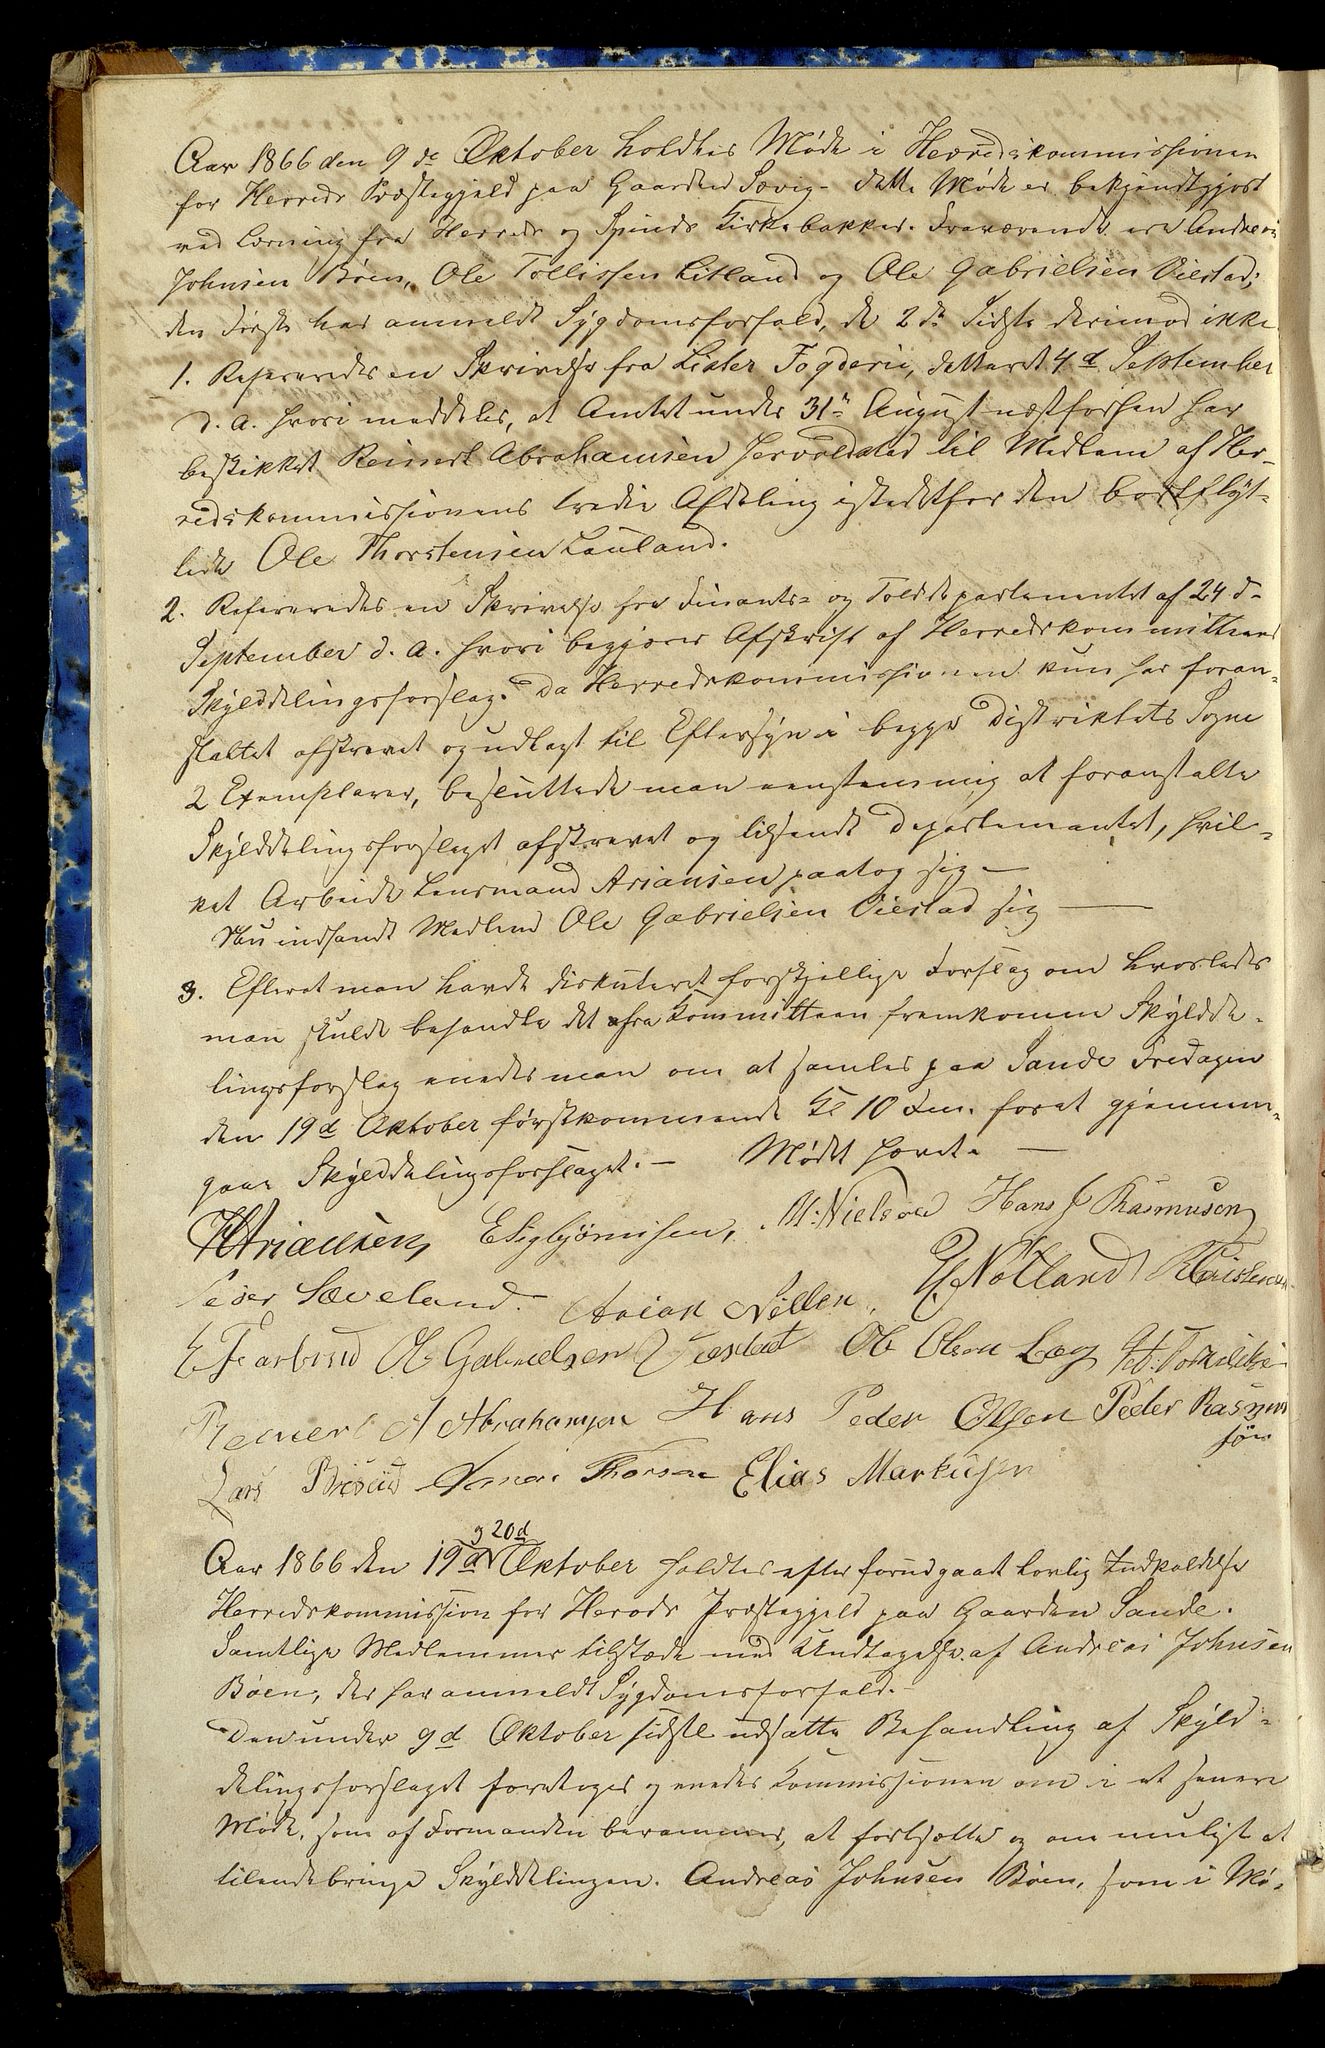 Aar 1866 den 9de Oktober holdtes Møde i Herredskommissionen
for Herreds Præstegjeld paa Gaarden Sævig. Dette Møde er bekjendtgjort
ved Læsning fra Herreds og Spinds Kirkebakker. Fraværende ere Andreas
Johnsen Bøen, Ole Tollissen Litland og Ole Gabrielsen Viestad;
den Første har anmeldt Sygdomsforfald, de 2de Sidste derimod ikke
1. Refereredes en Skrivelse fra Lister Fogderie, datteret 4d September
d. A. hvori meddeles, at Amtet under 31te August næstforhen har
beskikket Reinert Abrahamsen Jervoldstad til Medlem af Her-
redskommissionens tredie Afdeling istedetfor den bortflyt-
tede Ole Thorstensen Lauland.
2. Refereredes en Skrivelse fra Finants- og Tolddepartementet af 24d
September d. A. hvori begjæres Afskrift af Herredskommitteens
Skylddelingsforslag. Da Herredskommissionen kun har foran-
staltet afskrevet og udlagt til Eftersyn i begge Distriktets Sogne
2 Exemplarer, besluttede man eenstemmig at foranstalte
Skylddelingsforslaget afskrevet og tilsendt Departementet, hvil-
ket Arbeide Lensmand Ariansen paatog sig —
Nu indfandt Medlem Ole Gabrielsen Viestad sig —
3. Efterat man havde diskuteret forskjellige Forslag om hvorledes
man skulde behandle det fra Kommitteen fremkomne Skyldde-
lingsforslag enedes man om at samles paa Sande Fredagen
den 19d Oktober førstkommende Kl 10 Fm. forat gjennem-
gaa Skylddelingsforslaget. — Mødet hævet. —
Ariansen E Sigbjørnsen, Nielsen Hans J Rasmusen
Peder Sæveland. Arian Nilsen, Nøtland Christensen
E Farbrud Ole Gabrielsen Viestad Ole Olsen Log
Reinert A Abrahamsen Hans Peder Olsen Peder Rasmus
søn
Lars Briseid Thorsen Elias Markusen
g 20d
Aar 1866 den 19d Oktober holdtes efter forudgaaet lovlig Indkaldelse
Herredskommission for Herreds Præstegjeld paa Gaarden Sande.
Samtlige Medlemmer tilstede med Undtagelse af Andreas Johnsen
Bøen, der har anmeldt Sygdomsforfald. —
Den under 9d Oktober sidste udsatte Behandling af Skyld-
delingsforslaget foretoges og enedes Kommissionen om i et senere
Møde, som af Formanden berammes, at fortsætte og om muligt at
tilendebringe Skylddelingen. Andreas Johnsen Bøen, som i Mø-